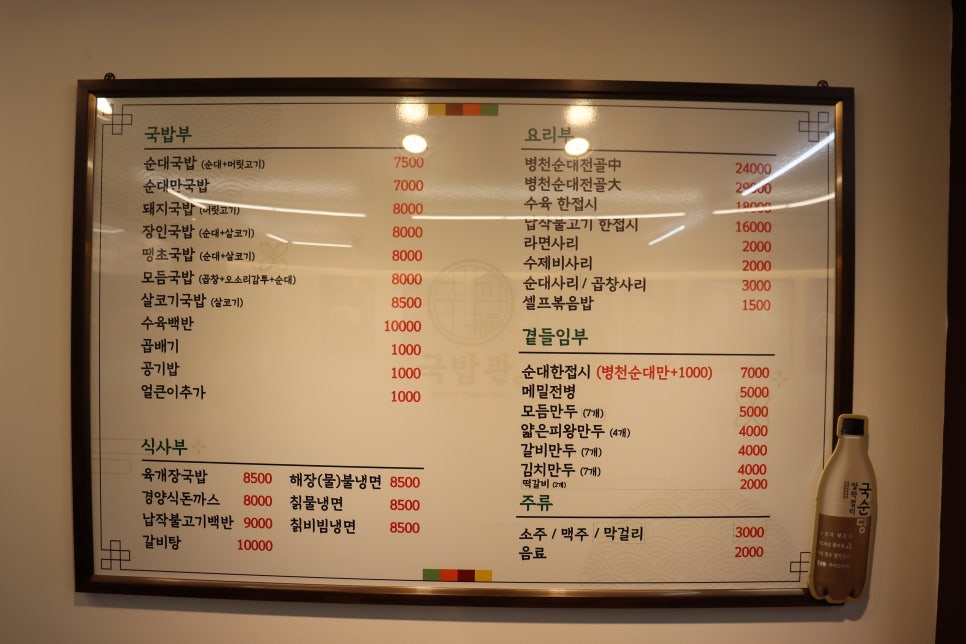 국밥부
순대국밥 (순대+머릿고기) 7500
순대만국밥 7000
돼지국밥 (머릿고기) 8000
장인국밥 (순대+살코기) 8000
땡초국밥 (순대+살코기) 8000
모듬국밥 (곱창+오소리감투+순대) 8000
살코기국밥 (살코기) 8500
수육백반 10000
곱배기 1000
공기밥 1000
얼큰이추가 1000
식사부
육개장국밥 8500
경양식돈까스 8000
납작불고기백반 9000
갈비탕 10000
해장(물)불냉면 8500
칡물냉면 8500
칡비빔냉면 8500
요리부
병천순대전골中 24000
병천순대전골大 29000
수육 한접시 18000
납작불고기 한접시 16000
라면사리 2000
수제비사리 2000
순대사리 / 곱창사리 3000
셀프볶음밥 1500
곁들임부
순대한접시 (병천순대만+1000) 7000
메밀전병 5000
모듬만두 (7개) 5000
얇은피왕만두 (4개) 4000
갈비만두 (7개) 4000
김치만두 (7개) 4000
떡갈비 (2개) 2000
주류
소주 / 맥주 / 막걸리 3000
음료 2000
국밥관
국순당
쌀막걸리